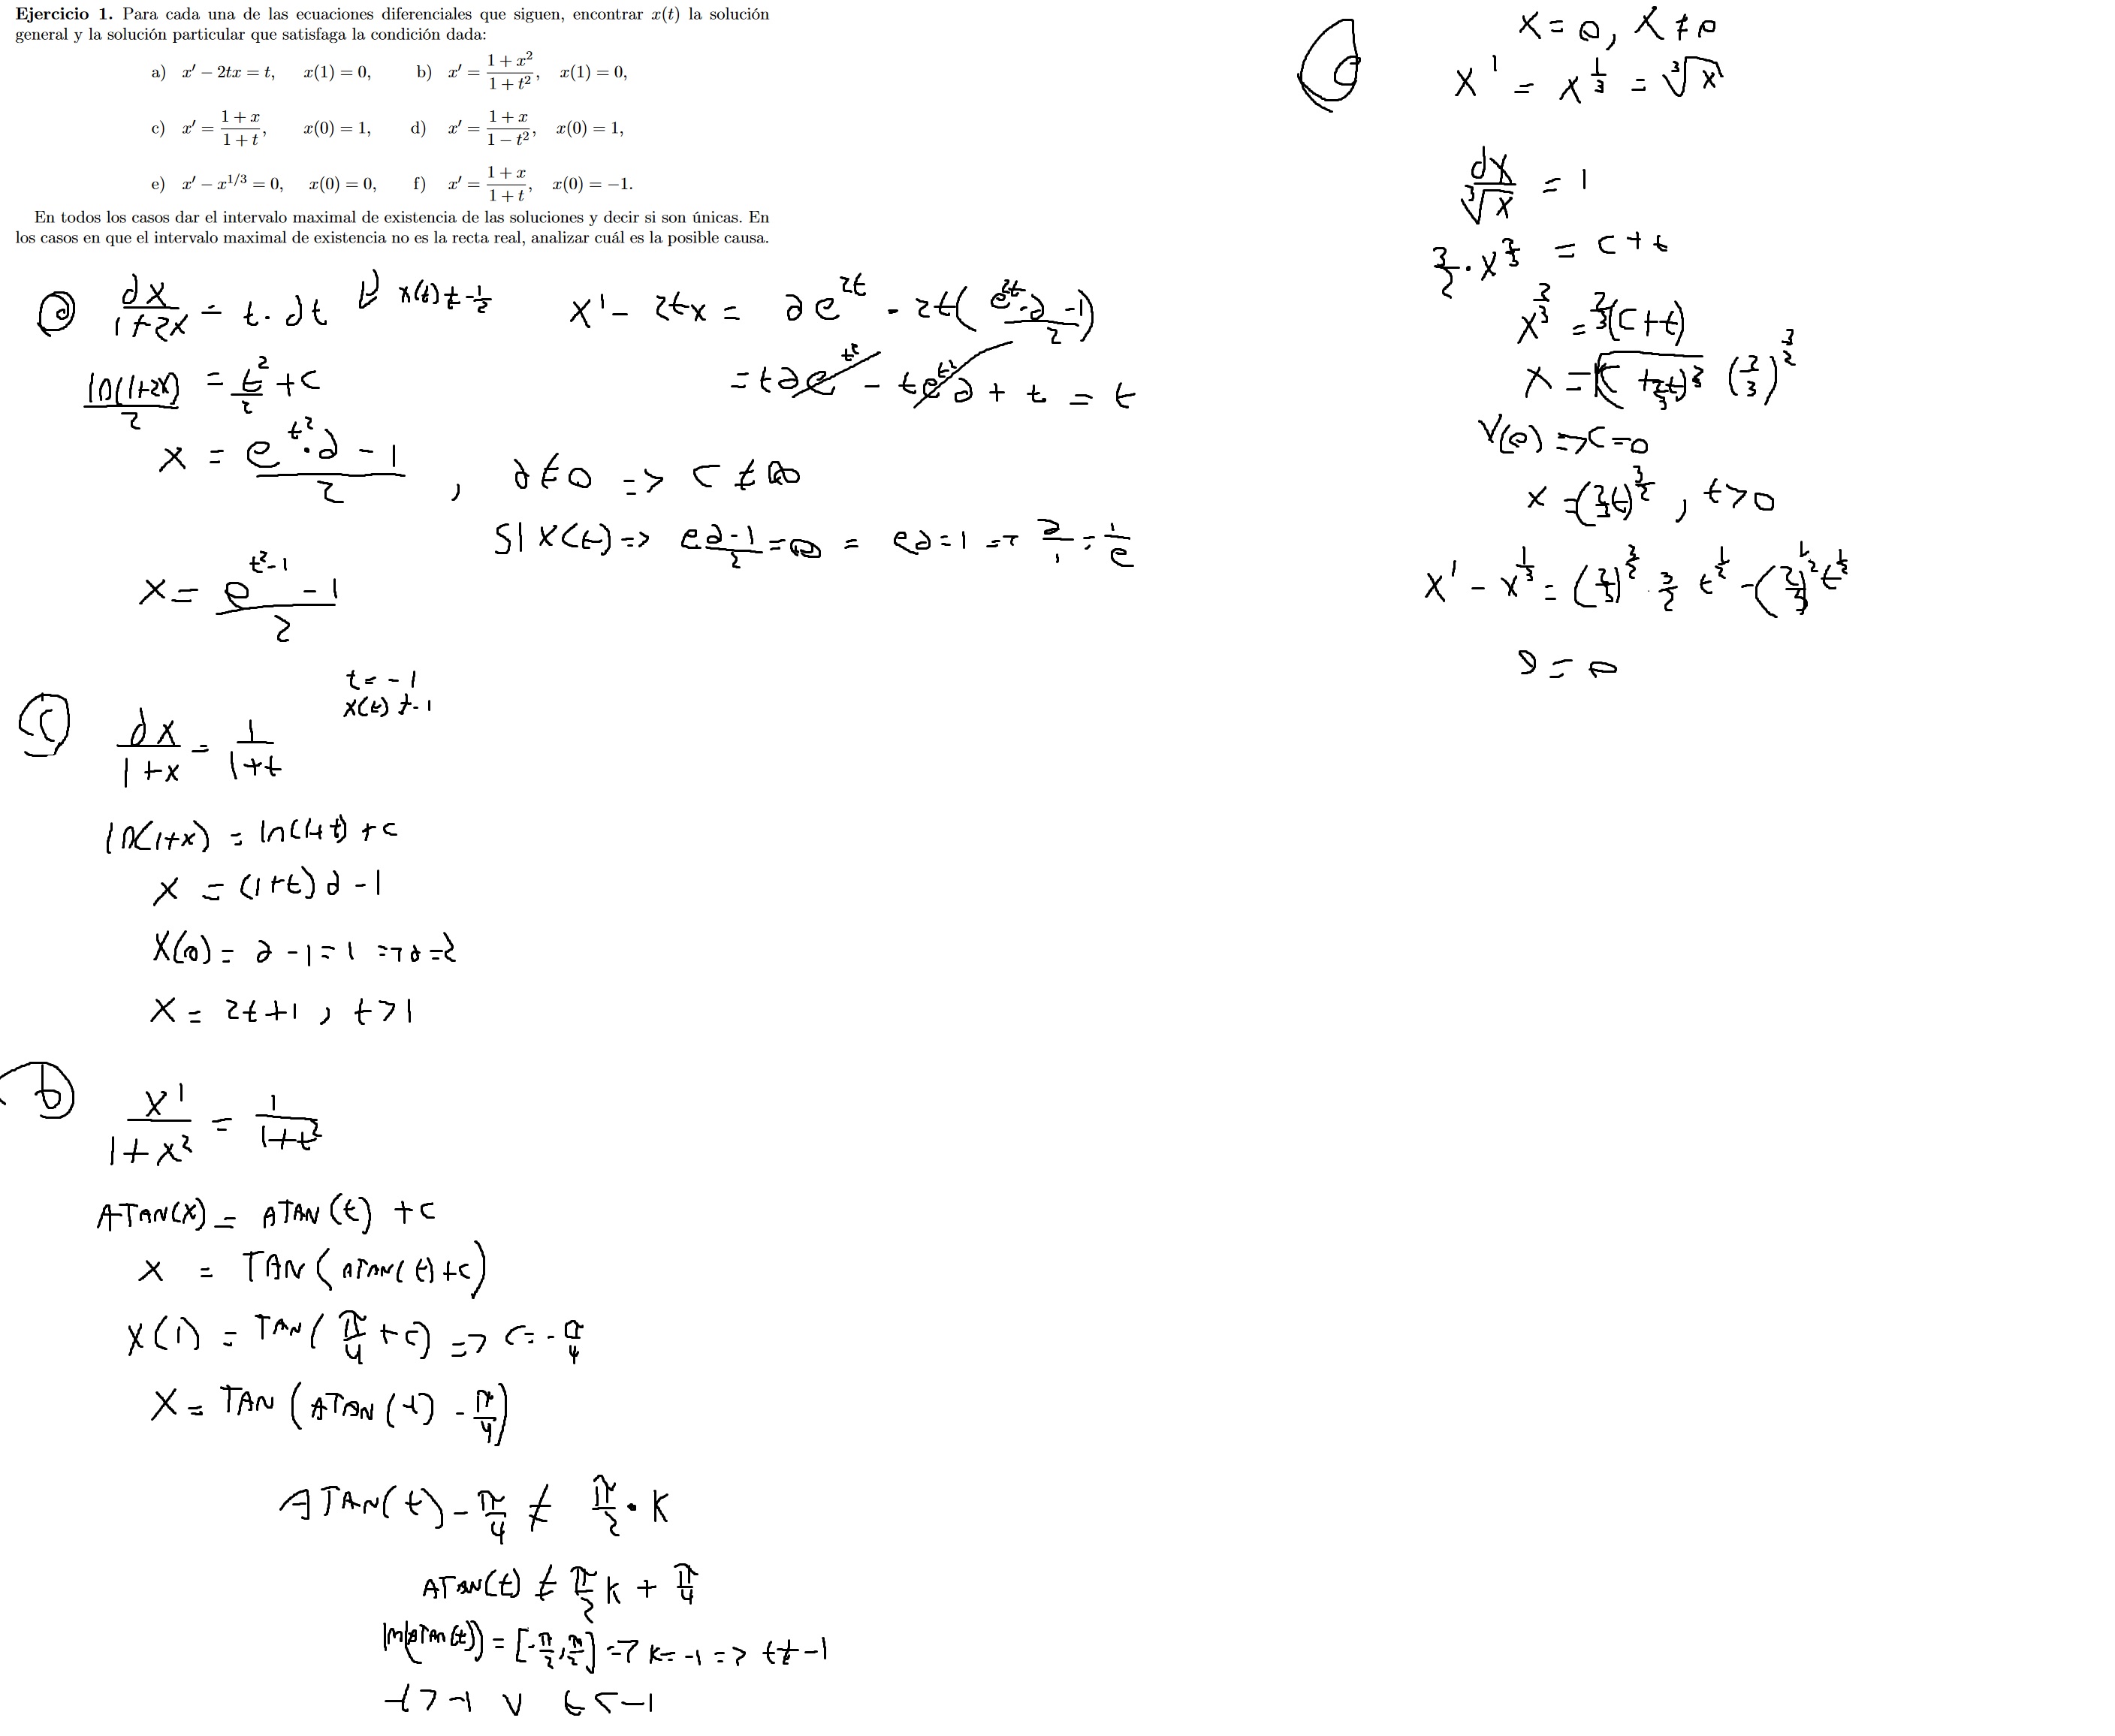 Ejercicio 1. Para cada una de las ecuaciones diferenciales que siguen, encontrar x(t) la solución
general y la solución particular que satisfaga la condición dada:
a) x′ − 2tx = t, x(1) = 0, b) x′ = (1 + x²)/(1 + t²), x(1) = 0,
c) x′ = (1 + x)/(1 + t), x(0) = 1, d) x′ = (1 + x)/(1 − t²), x(0) = 1,
e) x′ − x^{1/3} = 0, x(0) = 0, f) x′ = (1 + x)/(1 + t), x(0) = −1.
En todos los casos dar el intervalo maximal de existencia de las soluciones y decir si son únicas. En
los casos en que el intervalo maximal de existencia no es la recta real, analizar cuál es la posible causa.
a
dx/(1+2x) = t · dt
x(t) ≠ -1/2
ln(1+2x)/2 = t²/2 + c
x = (e^{t²} · a - 1)/2 , a ≠ 0 => c ≠ ∞
SI x(t) => (ea-1)/2 = 0 = ea = 1 => a/1 = 1/e
x = (e^{t²-1} - 1)/2
x' - 2tx = ae^{2t} - 2t((e^{2t}·a - 1)/2)
= tae^{t²} - te^{t²}a + t = t
c
t = -1
x(t) ≠ -1
dx/(1+x) = 1/(1+t)
ln(1+x) = ln(1+t) + c
x = (1+t)a - 1
x(0) = a - 1 = 1 => a = 2
x = 2t+1 , t>1
b
x'/(1+x²) = 1/(1+t²)
ATAN(x) = ATAN(t) + c
x = TAN(ATAN(t)+c)
x(1) = TAN(π/4 + c) => c = -π/4
x = TAN(ATAN(t) - π/4)
ATAN(t) - π/4 ≠ π/2 · K
ATAN(t) ≠ π/2 K + π/4
Im(ATAN(t)) = [-π/2, π/2] => K = -1 => t ≠ -1
t > -1 v t < -1
x = 0, x ≠ 0
x' = x^{1/3} = ∛x
dx/∛x = 1
3/2 · x^{2/3} = c + t
x^{2/3} = 2/3(c+t)
x = (2/3)^{3/2}
=> c = 0
x = (2/3 t)^{3/2} , t>0
x' - x^{1/3} = (2/3)^{3/2} · 3/2 t^{1/2} - (2/3)^{1/2} t^{1/2}
0 = 0